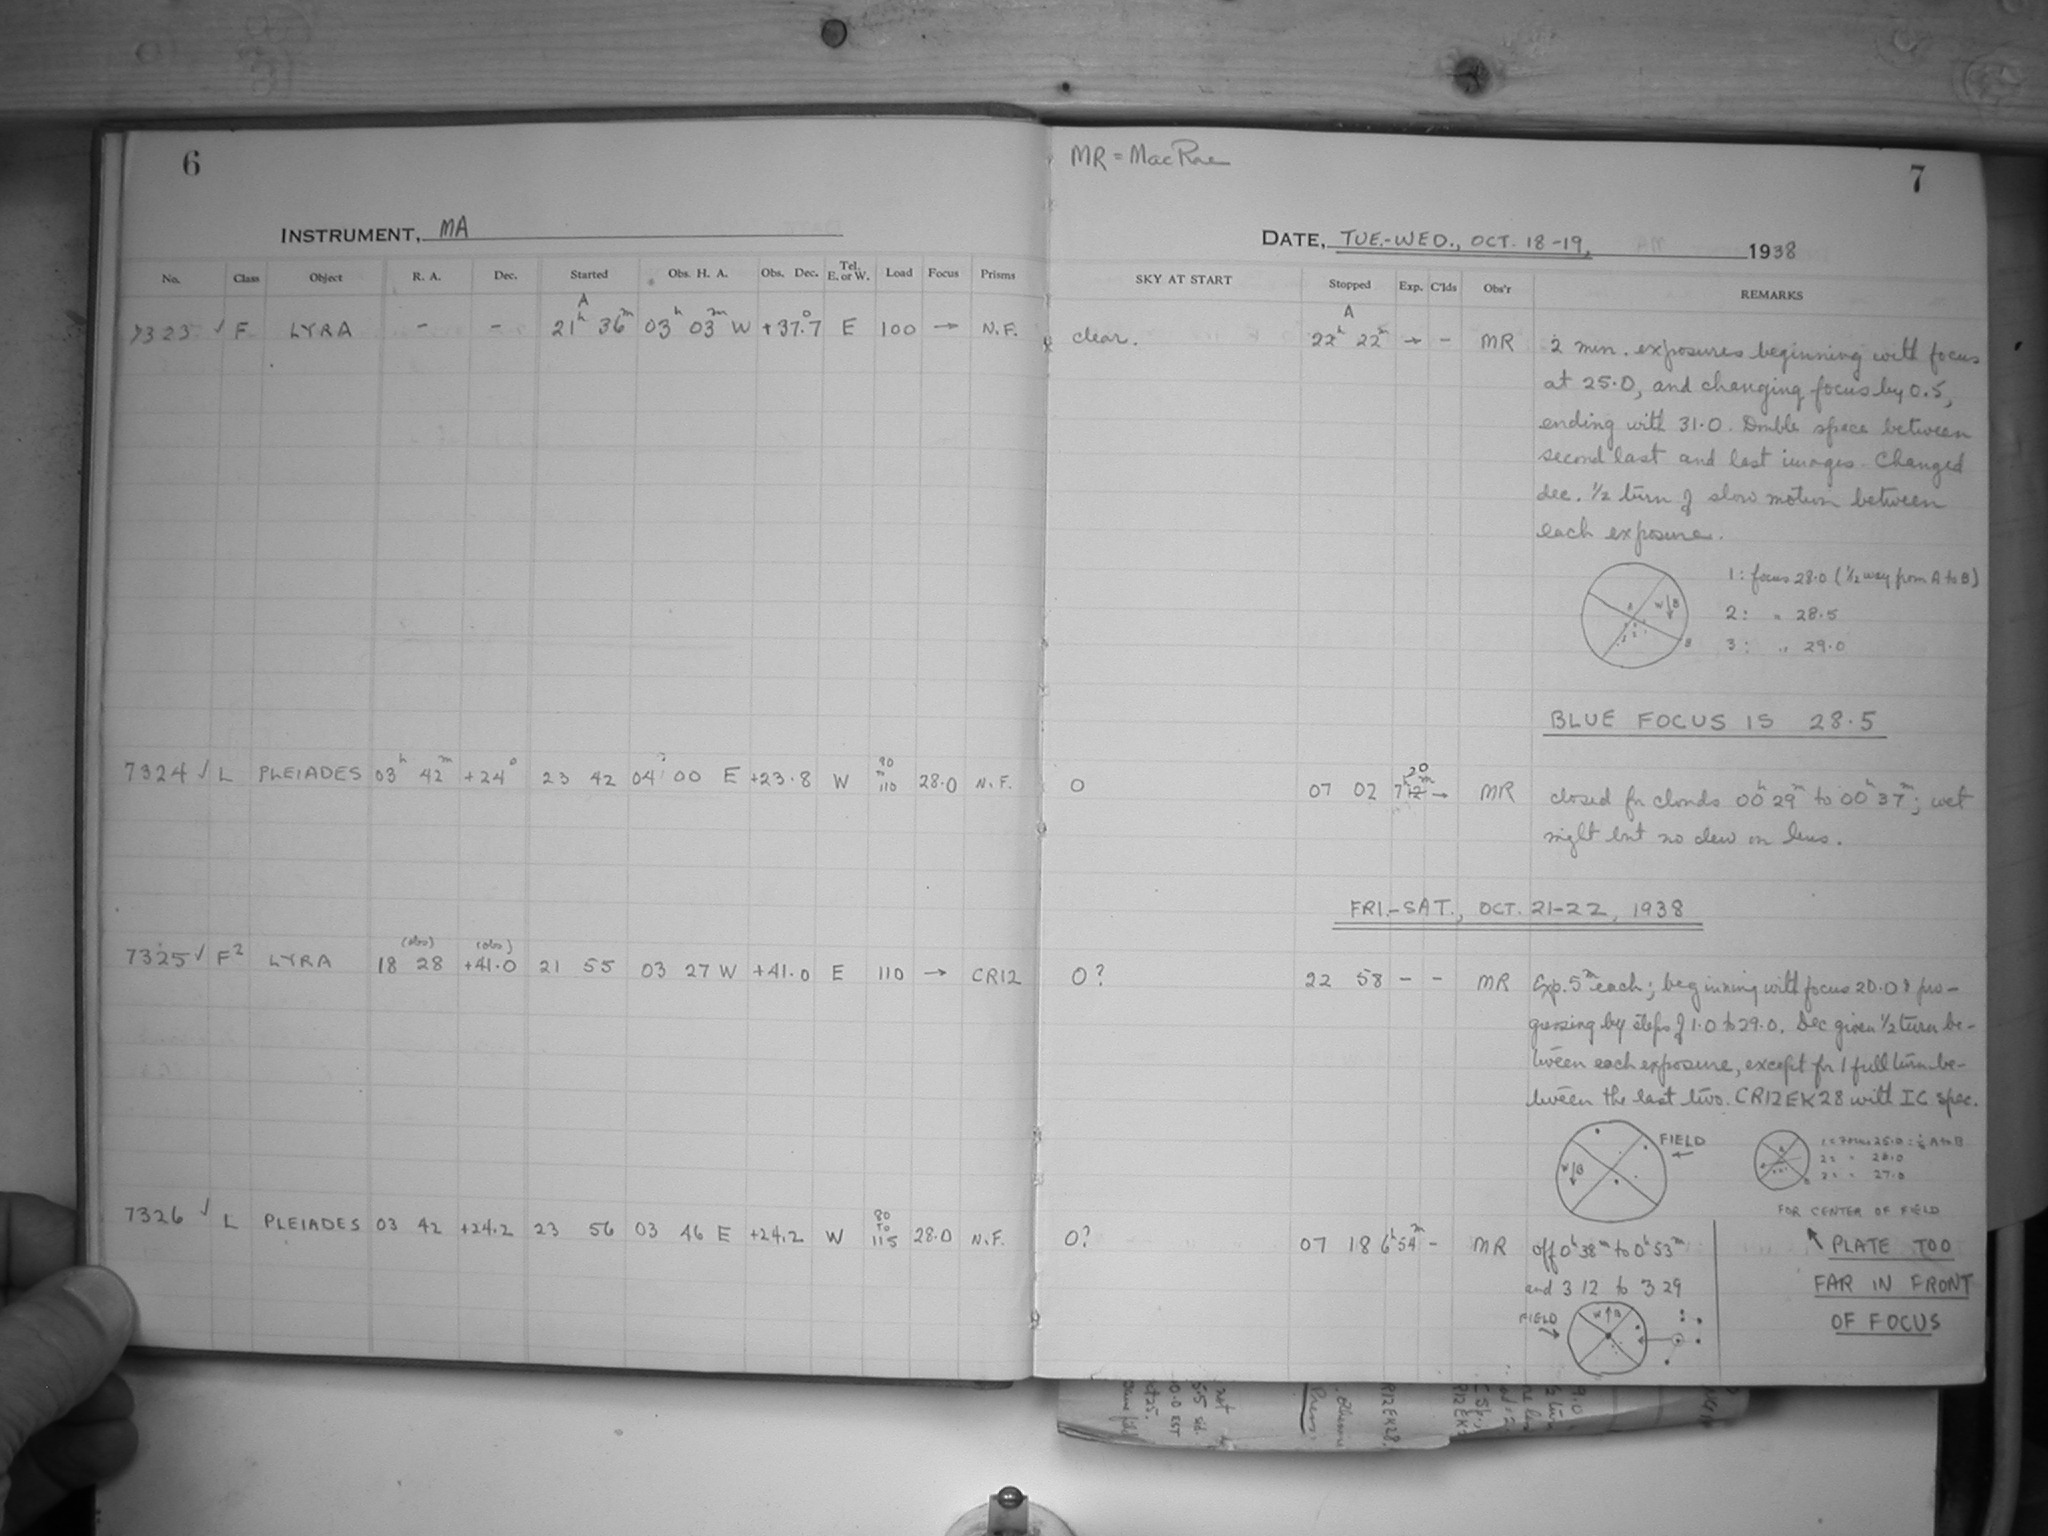 6
INSTRUMENT, MA
No. Class Object R. A. Dec. Started Obs. H. A. Obs. Dec. Tel. E. or W. Load Focus Prisms
A
7323 ✓ F LYRA - - 21h 36m 03h 03m W +37°.7 E 100 → N.F.
7324 ✓ L PLEIADES 03h 42m +24° 23 42 04 00 E +23.8 W 90 to 110 28.0 N.F.
(obs) (obs)
7325 ✓ F2 LYRA 18 28 +41.0 21 55 03 27 W +41.0 E 110 → CR12
7326 ✓ L PLEIADES 03 42 +24.2 23 56 03 46 E +24.2 W 80 TO 115 28.0 N.F.
MR = MacRae
7
DATE, TUE.-WED., OCT. 18-19, 1938
SKY AT START Stopped Exp. C'lds Obs'r REMARKS
A
clear. 22h 22m → - MR 2 min. exposures beginning with focus
at 25.0, and changing focus by 0.5,
ending with 31.0. Double space between
second last and last images. Changed
dec. 1/2 turn of slow motion between
each exposure.
A W B B
1: focus 28.0 (1/2 way from A to B)
2: " 28.5
3: " 29.0
BLUE FOCUS IS 28.5
0 07 02 7h 20m 12 → MR closed for clouds 00h 29m to 00h 37m; wet
night but no dew on lens.
FRI.-SAT., OCT. 21-22, 1938
0? 22 58 - - MR Exp. 5m each; beginning with focus 20.0 & pro-
gressing by steps of 1.0 to 29.0. Dec given 1/2 turn be-
tween each exposure, except for 1 full turn be-
tween the last two. CR12EK28 with IC spec.
W B
FIELD
25.0 A to B
27.0
FOR CENTER OF FIELD
0? 07 18 6h 54m - MR off 0h 38m to 0h 53m
and 3 12 to 3 29
PLATE TOO
FAR IN FRONT
OF FOCUS
FIELD
W B